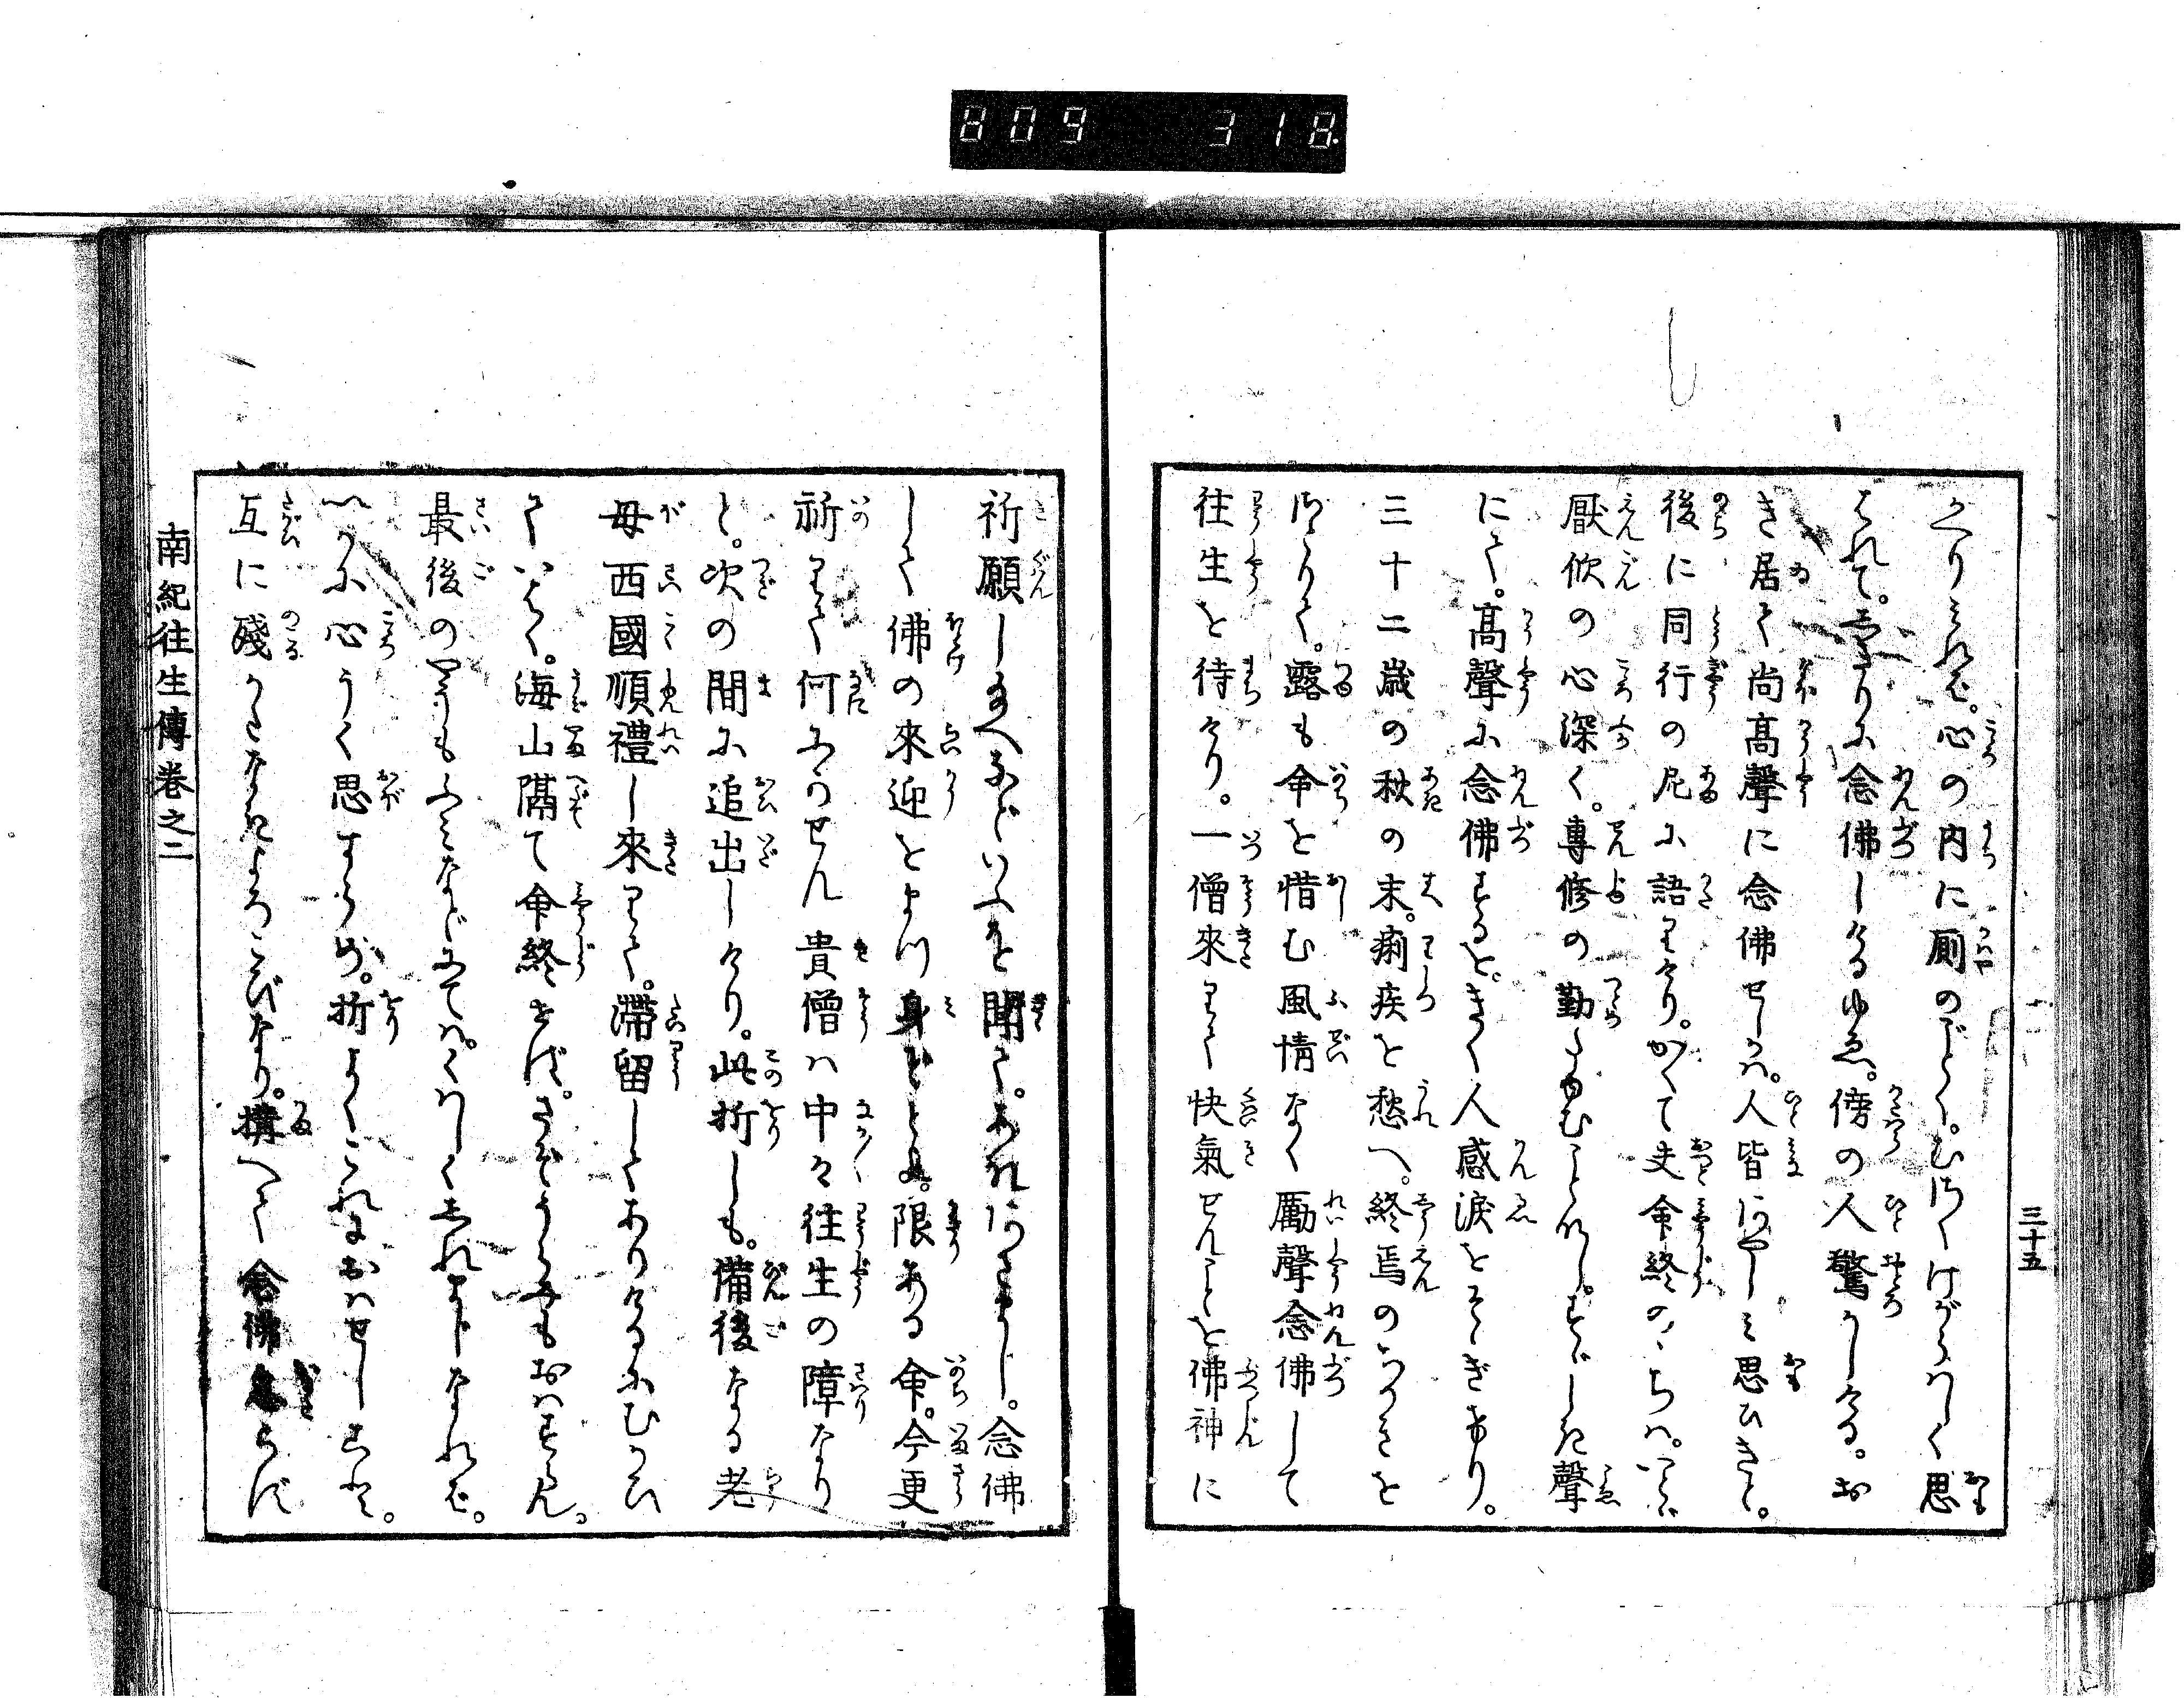 809 318
三十五
りみれば。心の内に厠のごとく。むさくけがらはしく思
はれて。しきりに念佛しけるゆゑ。傍の人驚かしける。お
き居て尚高聲に念佛せしかば。人皆あやしみ思ひきと。
後に同行の尼に語りけり。かくて夫命終のゝちは。いよ〳〵
厭欣の心深く。專修の勤たゆむことなし。すゞしき聲
にて。高聲に念佛するを。きく人感涙をそゝぎけり。
三十二歳の秋の末。痢疾を愁へ。終焉のちかきを
さとりて。露も命を惜む風情なく勵聲念佛して
往生を待けり。一僧來りて快氣せんことを佛神に
祈願し給へなどいふを聞て。あなあさまし。念佛
して佛の來迎をまつ身ぞとよ。限ある命。今更
祈りて何にかせん貴僧は中々往生の障なり
と。次の間に追出しけり。此折しも。備後なる老
母西國順禮し來りて。滯留してありけるにむかひ
ていはく。海山隔て命終せば。さぞうらみもおはすらん。
最後のやうもふみなどにては。くはしくしれまじなれば。
いかに心うく思すらめ。折よくこれにおはせしこと。
互に殘かたなきよろこびなり。構へて念佛怠らず
南紀往生傳卷之二